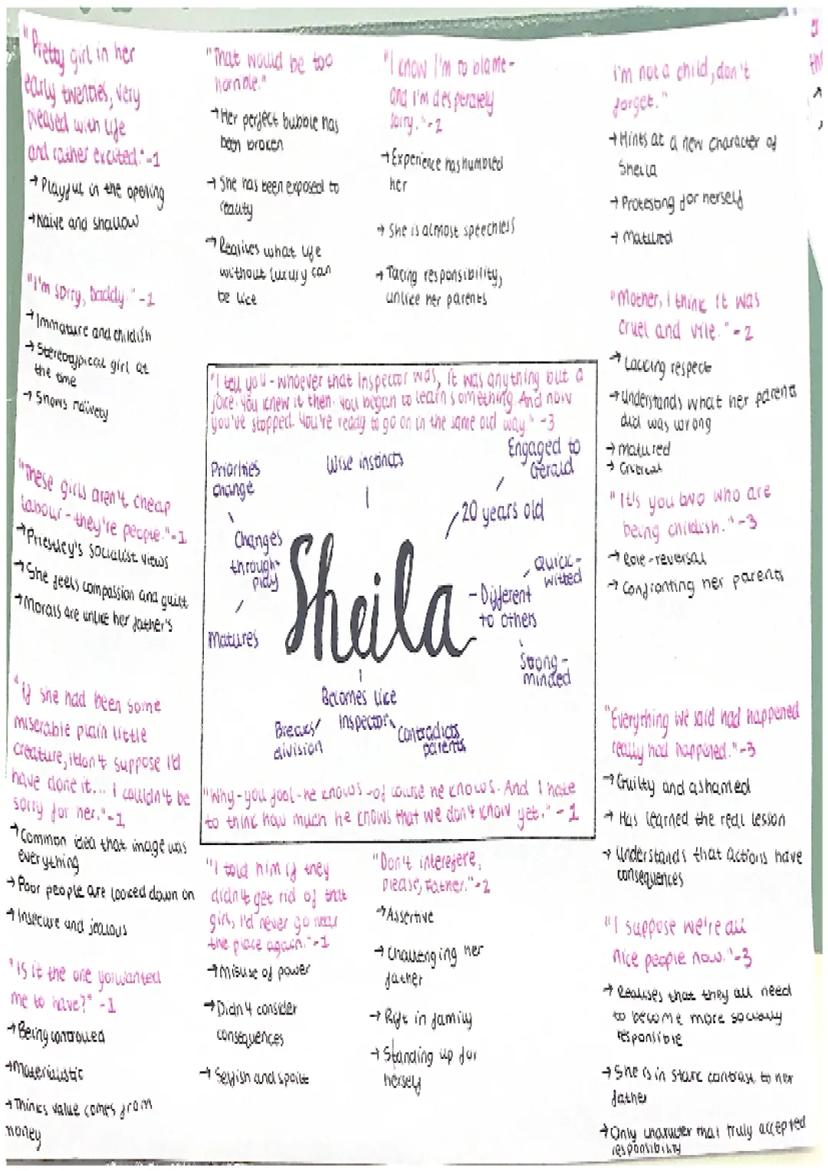 "Pretty girl in her
early twenties, very
pleased with life
and rather excited."-1
→ Playful in the opening
→ Naive and shallow
"I'm sorry, Daddy."-1
→ Immature and childish
→ Stereotypical girl at
the time
→ Shows naivety
"These girls aren't cheap
labour - they're people."-1
→ Priestley's socialist views
→ She feels compassion and guilt
→ Morals are unlike her father's
"If she had been some
miserable plain little
creature, I don't suppose I'd
have done it... I couldn't be
sorry for her."-1
→ Common idea that image was
everything
→ Poor people are looked down on
→ Insecure and jealous
"Is it the one you wanted
me to have?" -1
→ Being controlled
→ Materialistic
→ Thinks value comes from
money
"That would be too
horrible."
→ Her perfect bubble has
been broken
→ She has been exposed to
reality
→ Realises what life
without luxury can
be like
"I know I'm to blame -
and I'm desperately
sorry."-2
→ Experience has humbled
her
→ She is almost speechless
→ Taking responsibility,
unlike her parents
I'm not a child, don't
forget."
→ Hints at a new character of
Sheila
→ Protesting for herself
→ Matured
"Mother, I think it was
cruel and vile."-2
→ Lacking respect
→ Understands what her parents
did was wrong
→ Matured
→ Critical
"It's you two who are
being childish."-3
→ Role-reversal
→ Confronting her parents
"Everything we said had happened
really had happened."-3
→ Guilty and ashamed
→ Has learned the real lesson
→ Understands that actions have
consequences
"I suppose we're all
nice people now."-3
→ Realises that they all need
to become more socially
responsible
→ She is in stark contrast to her
father
→ Only character that truly accepted
responsibility
"I tell you - whoever that Inspector was, it was anything but a
joke. You knew it then. You began to learn something. And now
you've stopped. You're ready to go on in the same old way."-3
Priorities
change
Wise instincts
Engaged to
Gerald
20 years old
Changes
through
play
Quick-
witted
Sheila
Different
to others
Matures
Strong-
minded
Becomes like
Inspector
Breaks
division
Contradicts
parents
"Why - you fool - he knows - of course he knows. And I hate
to think how much he knows that we don't know yet." - 1
"I told him if they
didn't get rid of that
girl, I'd never go near
the place again."-1
→ Misuse of power
→ Didn't consider
consequences
→ Selfish and spoilt
"Don't interefere,
please, Father."-2
→ Assertive
→ Challenging her
father
→ Rift in family
→ Standing up for
herself